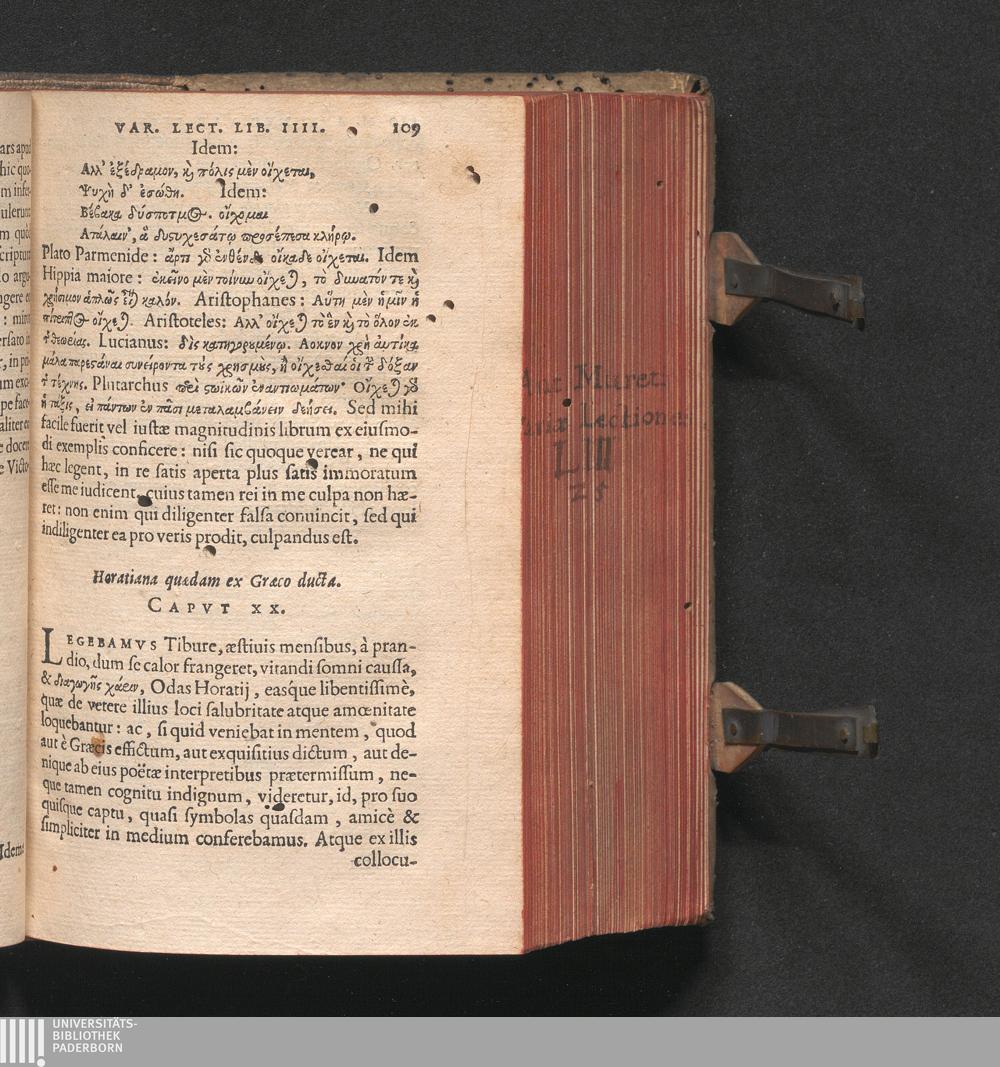 VAR. LECT. LIB. IIII. 109
Idem:
Ἀλλ' ἐξέδραμον, καὶ πόλις μὲν οἴχεται,
Ψυχὴ δ' ἐσώθη. Idem:
Βέβακα δύσποτμος. οἴχομαι
Ἀτάλαιν', ἃ δυςυχεσάτῳ προσέπεσα κλήρῳ.
Plato Parmenide: ἄρτι γὸ ἐνθένδε οἴκαδε οἴχεται. Idem
Hippia maiore: ἐκεῖνο μὲν τοίνυν οἴχεται, τὸ δυνατόν τε καὶ
χρήσιμον ἁπλῶς εἶναι καλόν. Aristophanes: Αὕτη μὲν ἡμῖν ἡ
οἴχεται. Aristoteles: Ἀλλ' οἴχεται τὸ ἓν καὶ τὸ ὅλον ἐκ
Lucianus: δὶς κατηγορουμένῳ. Ἄοκνον χρὴ αὐτίκα
μάλα παρεςάναι συνείροντα τοὺς χρησμοὺς, ἢ οἴχεσθαί οἱ τὴν δόξαν
τῆς τέχνης. Plutarchus περὶ ςωϊκῶν ἐναντιωμάτων· Οἴχεται γὸ
ἡ τάξις, εἰ πάντων ἐν πᾶσι μεταλαμβάνειν δεήσει. Sed mihi
facile fuerit vel iustæ magnitudinis librum ex eiusmo-
di exemplis conficere: nisi sic quoque verear, ne qui
hæc legent, in re satis aperta plus satis immoratum
esse me iudicent. cuius tamen rei in me culpa non hæ-
ret: non enim qui diligenter falsa conuincit, sed qui
indiligenter ea pro veris prodit, culpandus est.
Horatiana quædam ex Græco ducta.
CAPVT XX.
LEGEBAMVS Tibure, æstiuis mensibus, à pran-
dio, dum se calor frangeret, vitandi somni caussa,
& διαγωγῆς χάριν, Odas Horatij, easque libentissimè,
quæ de vetere illius loci salubritate atque amœnitate
loquebantur: ac, si quid veniebat in mentem, quod
aut è Græcis effictum, aut exquisitius dictum, aut de-
nique ab eius poëtæ interpretibus prætermissum, ne-
que tamen cognitu indignum, videretur, id, pro suo
quisque captu, quasi symbolas quasdam, amicè &
simpliciter in medium conferebamus. Atque ex illis
collocu-
Ant Mureti
Lectiones
LIII
25
UNIVERSITÄTS-
BIBLIOTHEK
PADERBORN